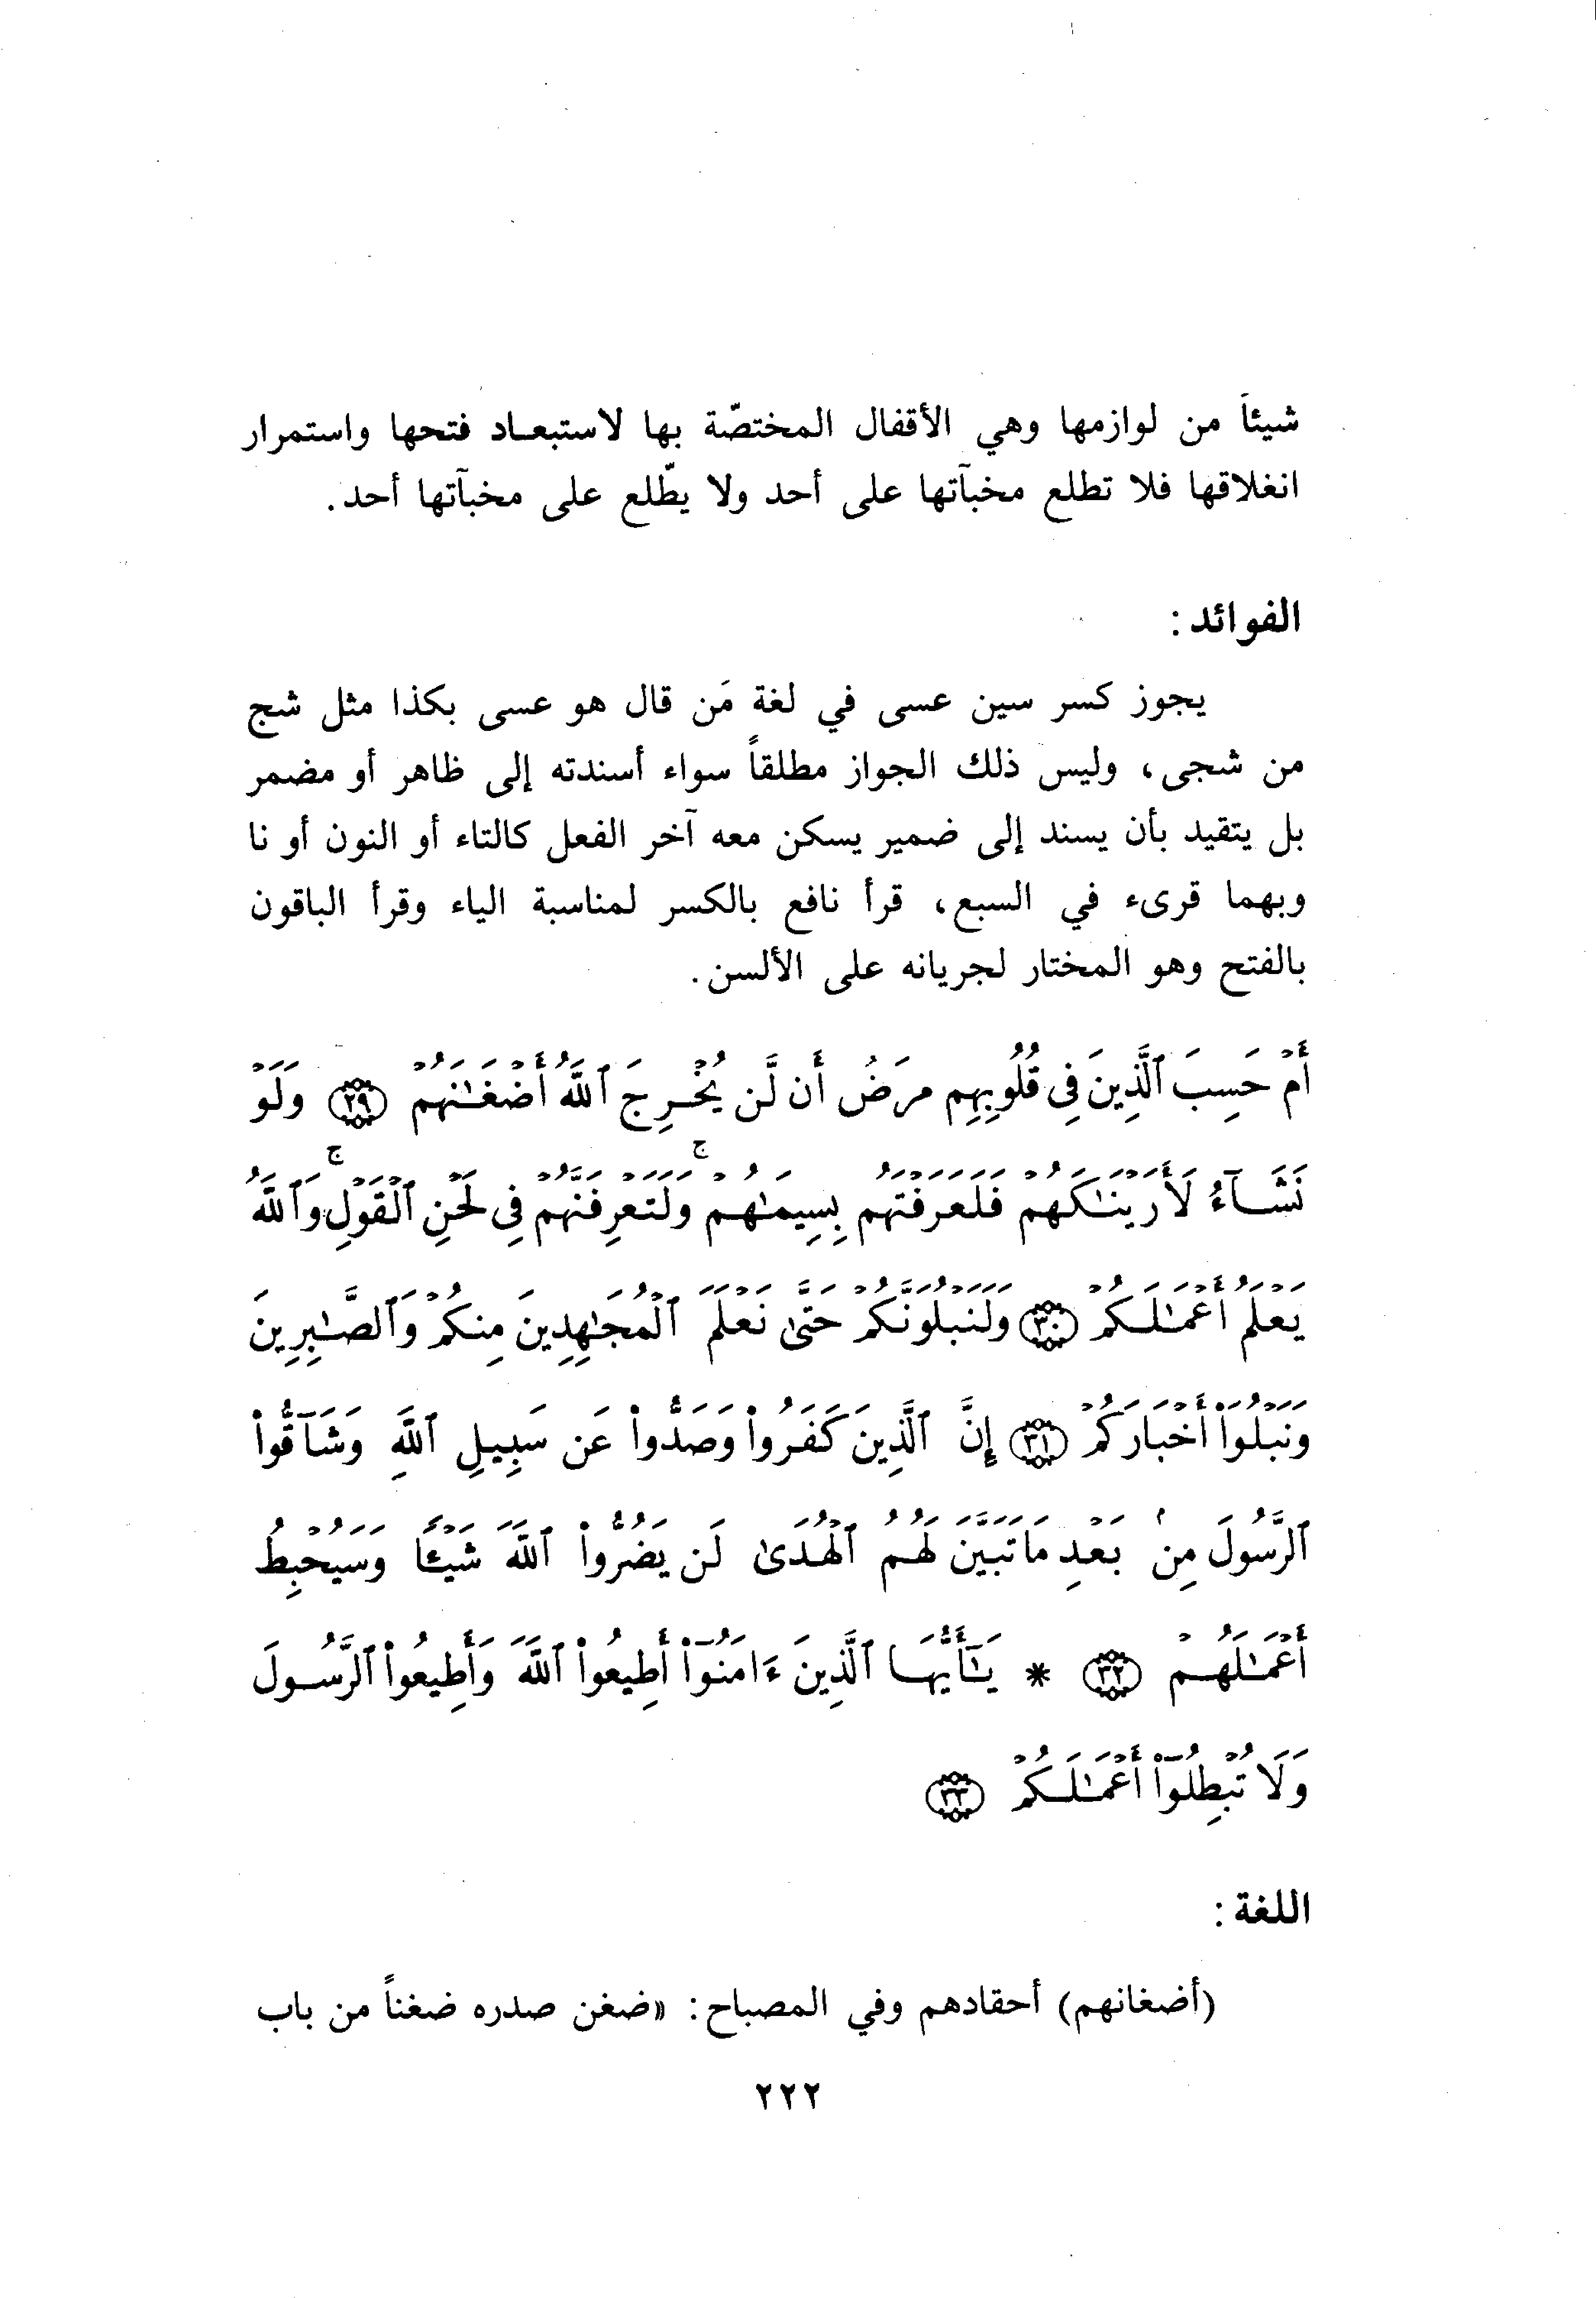 شيئاً من لوازمها وهي الأقفال المختصّة بها لاستبعاد فتحها واستمرار
انغلاقها فلا تطلع مخبآتها على أحد ولا يطّلع على مخبآتها أحد.
الفوائد :
يجوز كسر سين عسى في لغة مَن قال هو عسى بكذا مثل شج
من شجى، وليس ذلك الجواز مطلقاً سواء أسندته إلى ظاهر أو مضمر
بل يتقيد بأن يسند إلى ضمير يسكن معه آخر الفعل كالتاء أو النون أو نا
وبهما قرىء في السبع، قرأ نافع بالكسر لمناسبة الياء وقرأ الباقون
بالفتح وهو المختار لجريانه على الألسن.
أَمْ حَسِبَ ٱلَّذِينَ فِى قُلُوبِهِم مرَضٌ أَن لَّن يُخْرِجَ ٱللَّهُ أَضْغَـٰنَهُمْ ﴿٢٩﴾ وَلَوْ
نَشَآءُ لَأَرَيْنَـٰكَهُمْ فَلَعَرَفْتَهُم بِسِيمَـٰهُمْ ۚ وَلَتَعْرِفَنَّهُمْ فِى لَحْنِ ٱلْقَوْلِ ۚ وَٱللَّهُ
يَعْلَمُ أَعْمَـٰلَكُمْ ﴿٣٠﴾ وَلَنَبْلُوَنَّكُمْ حَتَّىٰ نَعْلَمَ ٱلْمُجَـٰهِدِينَ مِنكُمْ وَٱلصَّـٰبِرِينَ
وَنَبْلُوَاْ أَخْبَارَكُمْ ﴿٣١﴾ إِنَّ ٱلَّذِينَ كَفَرُواْ وَصَدُّواْ عَن سَبِيلِ ٱللَّهِ وَشَآقُّواْ
ٱلرَّسُولَ مِنۢ بَعْدِ مَا تَبَيَّنَ لَهُمُ ٱلْهُدَىٰ لَن يَضُرُّواْ ٱللَّهَ شَيْـًٔا وَسَيُحْبِطُ
أَعْمَـٰلَهُمْ ﴿٣٢﴾ * يَـٰٓأَيُّهَا ٱلَّذِينَ ءَامَنُوٓاْ أَطِيعُواْ ٱللَّهَ وَأَطِيعُواْ ٱلرَّسُولَ
وَلَا تُبْطِلُوٓاْ أَعْمَـٰلَكُمْ ﴿٣٣﴾
اللغة :
(أضغانهم) أحقادهم وفي المصباح: «ضغن صدره ضغناً من باب
٢٢٢